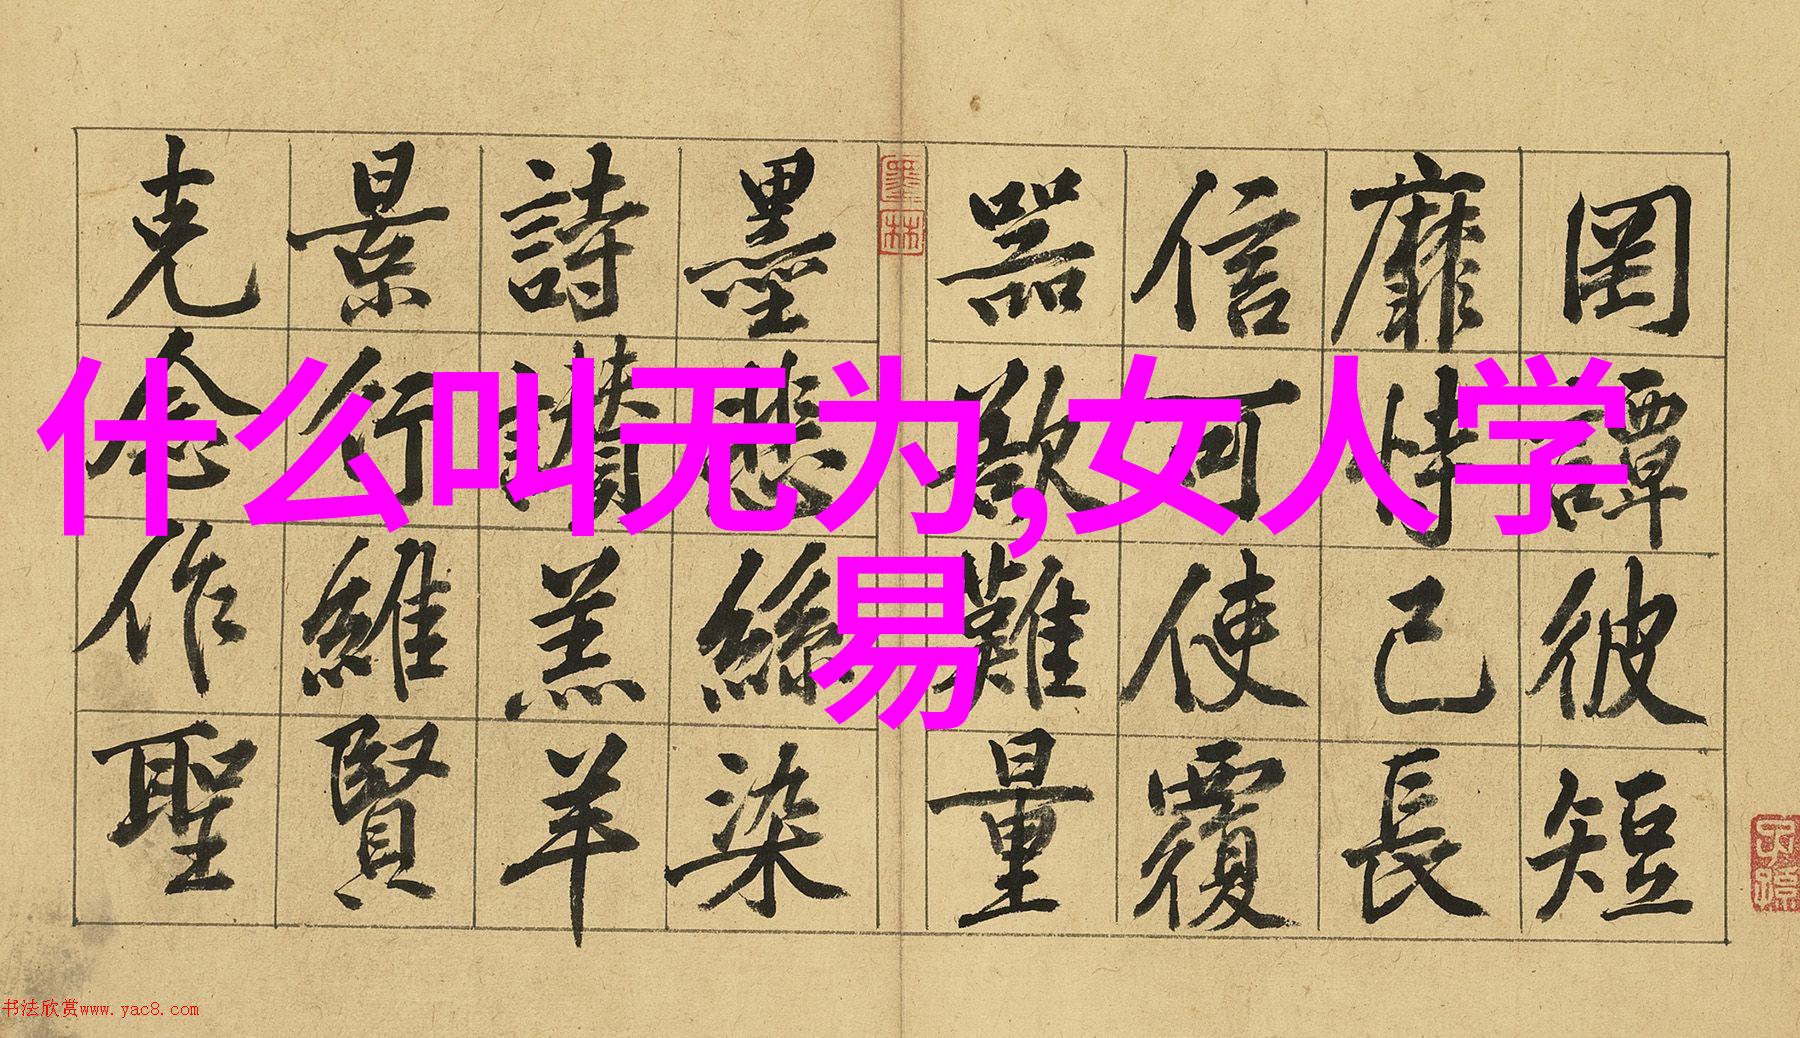 什么叫无为,女人学
易
罔譚彼短
靡恃己長
信可使覆
器欲難量
墨悲絲染
詩讃羔羊
景行維賢
克念作聖
墨林
书法欣赏www.yac8.com